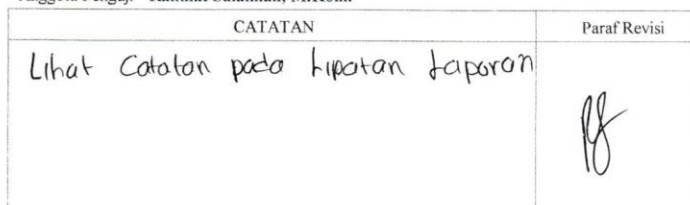 CATATAN
Paraf Revisi
Lihat Catatan pada Lipatan Laporan